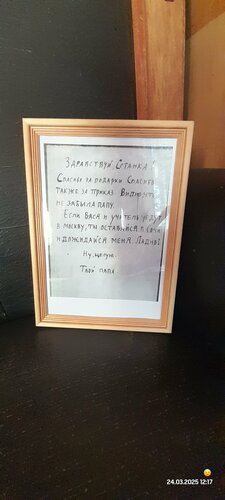 Здравствуй, Сетанка!
Спасибо за подарки. Спасибо
также за приказ. Видно, что
не забыла папу.
Если Вася и учитель уедут
в Москву, ты оставайся в Сочи
и дожидайся меня. Ладно?
Ну, целую.
Твой папа
24.03.2025 12:17